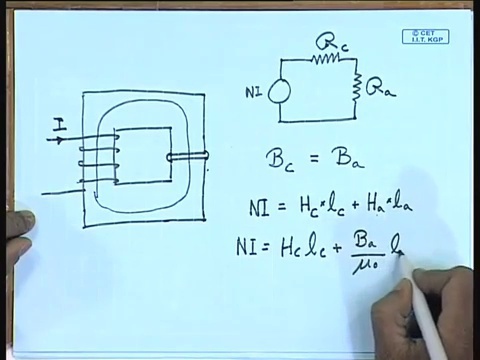 © CET
I.I.T. KGP
R_c
I
NI
R_a
B_c = B_a
NI = H_c * l_c + H_a * l_a
NI = H_c l_c + B_a/μ_0 l_a